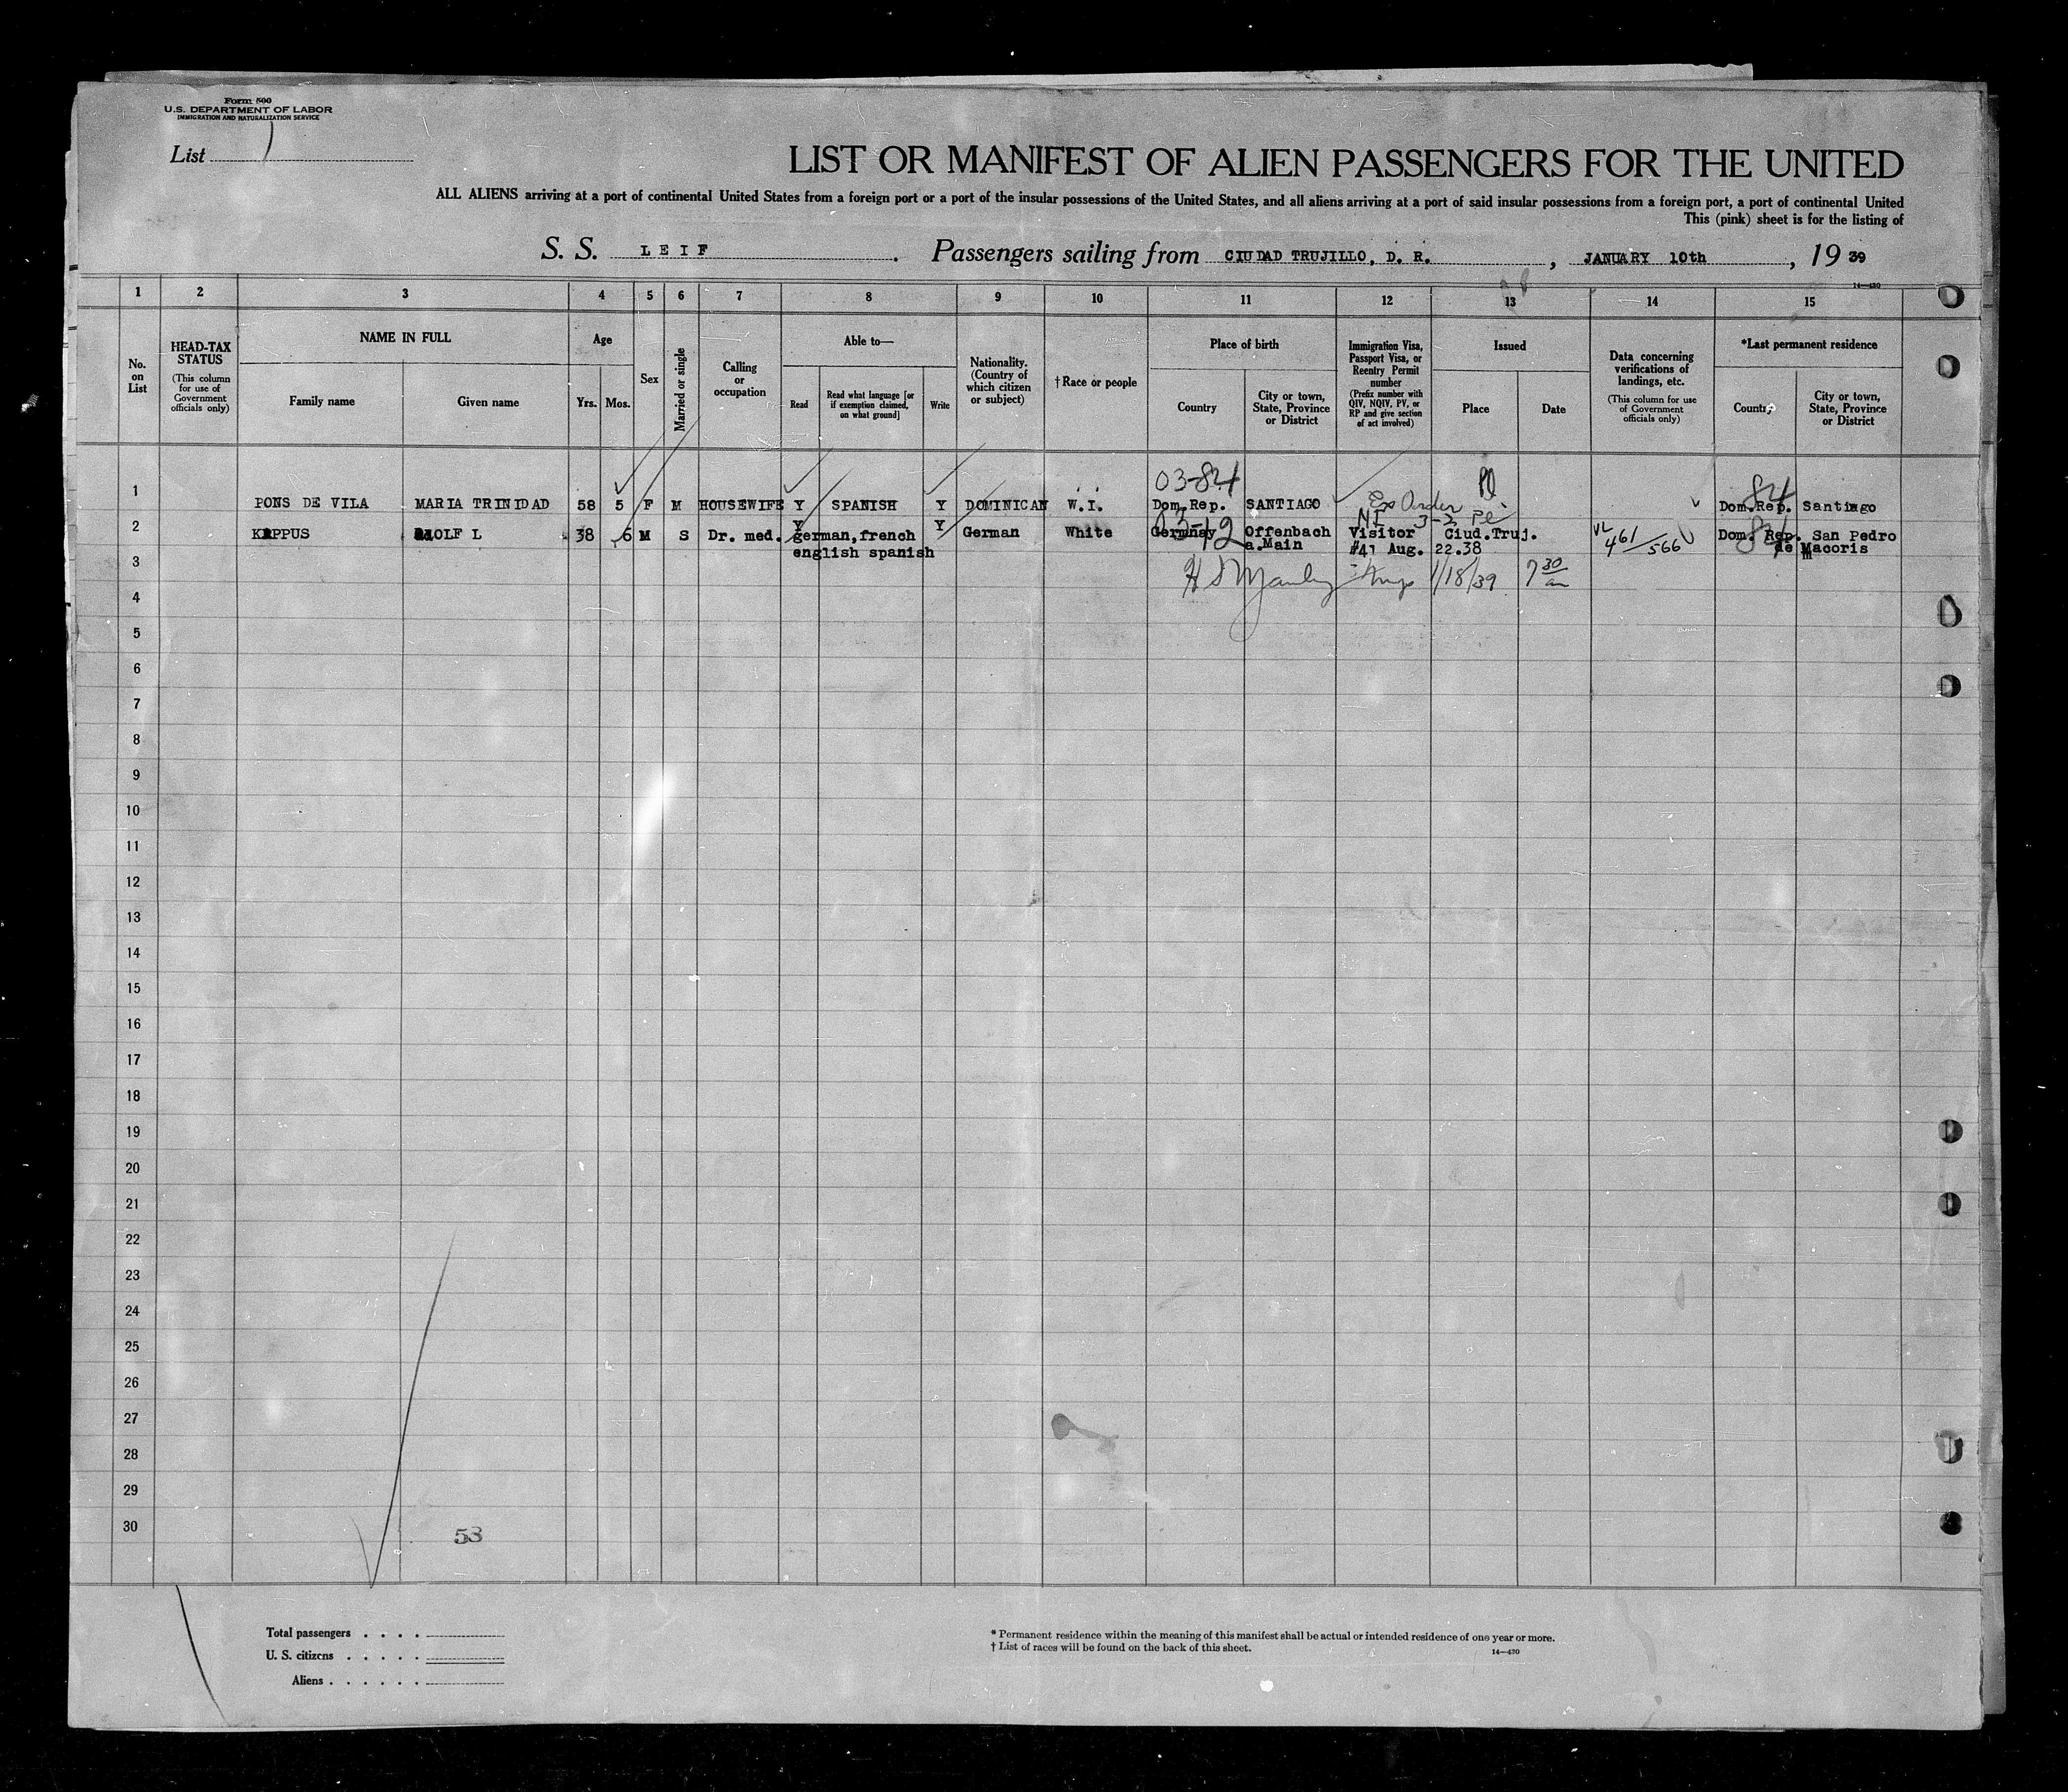 Form 500
U.S. DEPARTMENT OF LABOR
IMMIGRATION AND NATURALIZATION SERVICE
List 1
LIST OR MANIFEST OF ALIEN PASSENGERS FOR THE UNITED
ALL ALIENS arriving at a port of continental United States from a foreign port or a port of the insular possessions of the United States, and all aliens arriving at a port of said insular possessions from a foreign port, a port of continental United
This (pink) sheet is for the listing of
S. S. LEIF. Passengers sailing from CIUDAD TRUJILLO, D. R., JANUARY 10th, 19 39
14—430
1 2 3 4 5 6 7 8 9 10 11 12 13 14 15
No. on List
HEAD-TAX STATUS (This column for use of Government officials only)
NAME IN FULL
Family name Given name
Age
Yrs. Mos.
Sex
Married or single
Calling or occupation
Able to—
Read Read what language [or if exemption claimed, on what ground] Write
Nationality. (Country of which citizen or subject)
†Race or people
Place of birth
Country City or town, State, Province or District
Immigration Visa, Passport Visa, or Reentry Permit number (Prefix number with QIV, NQIV, PV, or RP and give section of act involved)
Issued
Place Date
Data concerning verifications of landings, etc. (This column for use of Government officials only)
*Last permanent residence
Country City or town, State, Province or District
03-84 84
1 PONS DE VILA MARIA TRINIDAD 58 5 F M HOUSEWIFE Y SPANISH Y DOMINICAN W.I. Dom.Rep. SANTIAGO Ex Order Dom.Rep. Santiago
NI 3-2
03-12 84
2 KAPPUS ADOLF L 38 6 M S Dr. med. Y german,french Y German White Germnay Offenbach Visitor Ciud.Truj. 461/566 Dom. Rep. San Pedro
english spanish a.Main #41 Aug. 22.38 de Macoris
3 1/18/39 7 30 am
4
5
6
7
8
9
10
11
12
13
14
15
16
17
18
19
20
21
22
23
24
25
26
27
28
29
30
53
Total passengers . . . .
U. S. citizens . . . . .
Aliens . . . . . .
* Permanent residence within the meaning of this manifest shall be actual or intended residence of one year or more.
† List of races will be found on the back of this sheet.
14—430